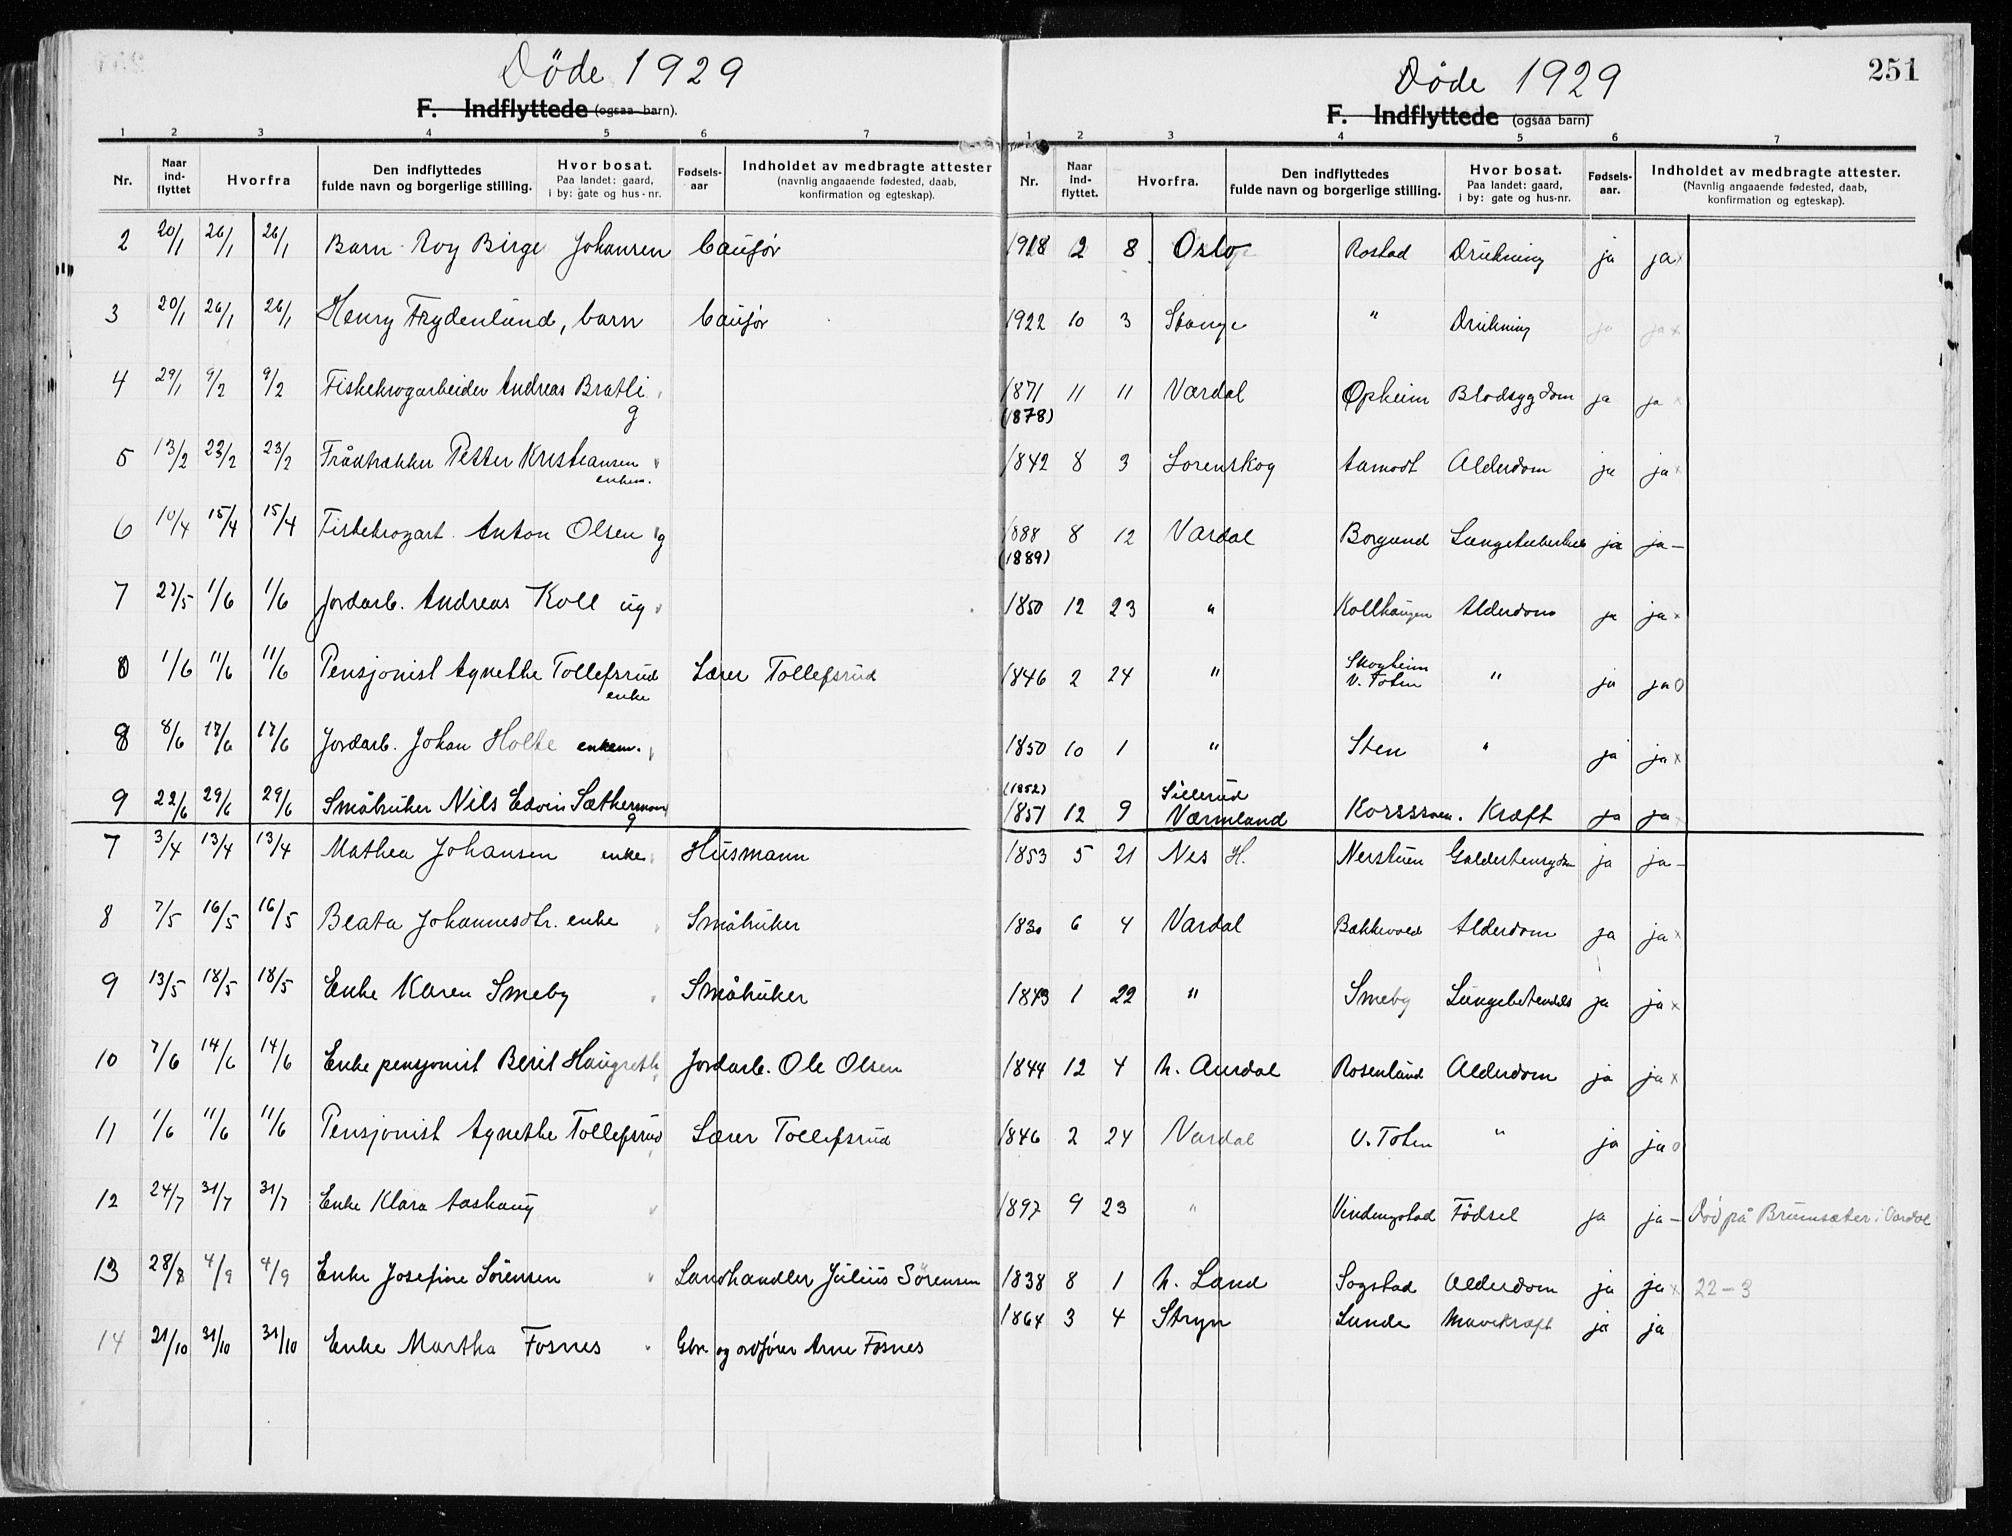 Døde 1929
F. Indflyttede (ogsaa barn).
1 2 3 4 5 6 7
Nr. Naar ind- flyttet Hvorfra Den indflyttedes fulde navn og borgerlige stilling. Hvor bosat. Paa landet: gaard, i by: gate og hus-nr. Fødsels- aar Indholdet av medbragte attester (navnlig angaaende fødested, daab, konfirmation og egteskap).
2 20/1 26/1 26/1 Barn Roy Birge Johansen
3 20/1 26/1 26/1 Henry Frydenlund, barn
4 29/1 9/2 9/2 Andreas Bratli
g
5 13/2 23/2 23/2 Petter Kristiansen
enkem.
6 10/4 15/4 15/4 Anton Olsen g
7 27/5 1/6 1/6 Jordarb. Andreas Koll ug
8 1/6 11/6 11/6 Pensjonist Agnethe Tollefsrud Lærer Tollefsrud
enke
8 8/6 17/6 17/6 Jordarb. Johan Holte enkem.
9 22/6 29/6 29/6 Småbruker Nils Edvin Sætherman
g
7 3/4 13/4 13/4 Mathea Johansen enke Husmann
8 7/5 16/5 16/5 Beata Johannesdtr. enke Småbruker
9 13/5 18/5 18/5 Enke Karen Smeby Småbruker
10 7/6 14/6 14/6 Enke pensjonist Berit Jordarb. Ole Olsen
11 1/6 11/6 11/6 Pensjonist Agnethe Tollefsrud Lærer Tollefsrud
12 24/7 31/7 31/7 Enke Klara Aashaug
13 28/8 4/9 4/9 Enke Josefine Sörensen Landhandler Julius Sörensen
14 21/10 31/10 31/10 Enke Martha Fosnes Gbr. og ordfører Arne Fosnes
Døde 1929
251
F. Indflyttede (ogsaa barn)
1 2 3 4 5 6 7
Nr. Naar ind- flyttet. Hvorfra. Den indflyttedes fulde navn og borgerlige stilling. Hvor bosat. Paa landet: gaard, i by: gate og hus-nr. Fødsels- aar. Indholdet av medbragte attester. (Navnlig angaaende fødested, daab, konfirmation og egteskap).
1918 2 8 Oslo Rostad Drukning ja ja x
1922 10 3 Stange " Drukning ja ja x
1871 11 11 Vardal Opheim Blodsygdom ja ja x
(1878)
1842 8 3 Lorenskog Aamodt Alderdom ja ja x
1888 8 12 Vardal Borgund ja ja –
(1889)
1850 12 23 " Kollhaugen Alderdom ja ja x
1846 2 24 " Skogheim V. Toten " ja ja o
1850 10 1 " Sten " ja ja x
(1852)
1851 12 9 Sillerud Værmland Kræft ja ja
1853 5 21 Nes H. Nerstuen ja ja –
1830 6 4 Vardal Bakkevold Alderdom ja ja x
1843 1 22 " Smeby ja ja x
1844 12 4 N. Aurdal Rosenlund Alderdom ja ja x
1846 2 24 Vardal V. Toten " ja ja o
1897 9 23 " Vindingstad Fødsel ja ja – Død på Brumsæter i Vardal
1838 8 1 N. Land Sogstad Alderdom ja ja x 22–3
1864 3 4 Stryn Lunde Mavekræft ja ja